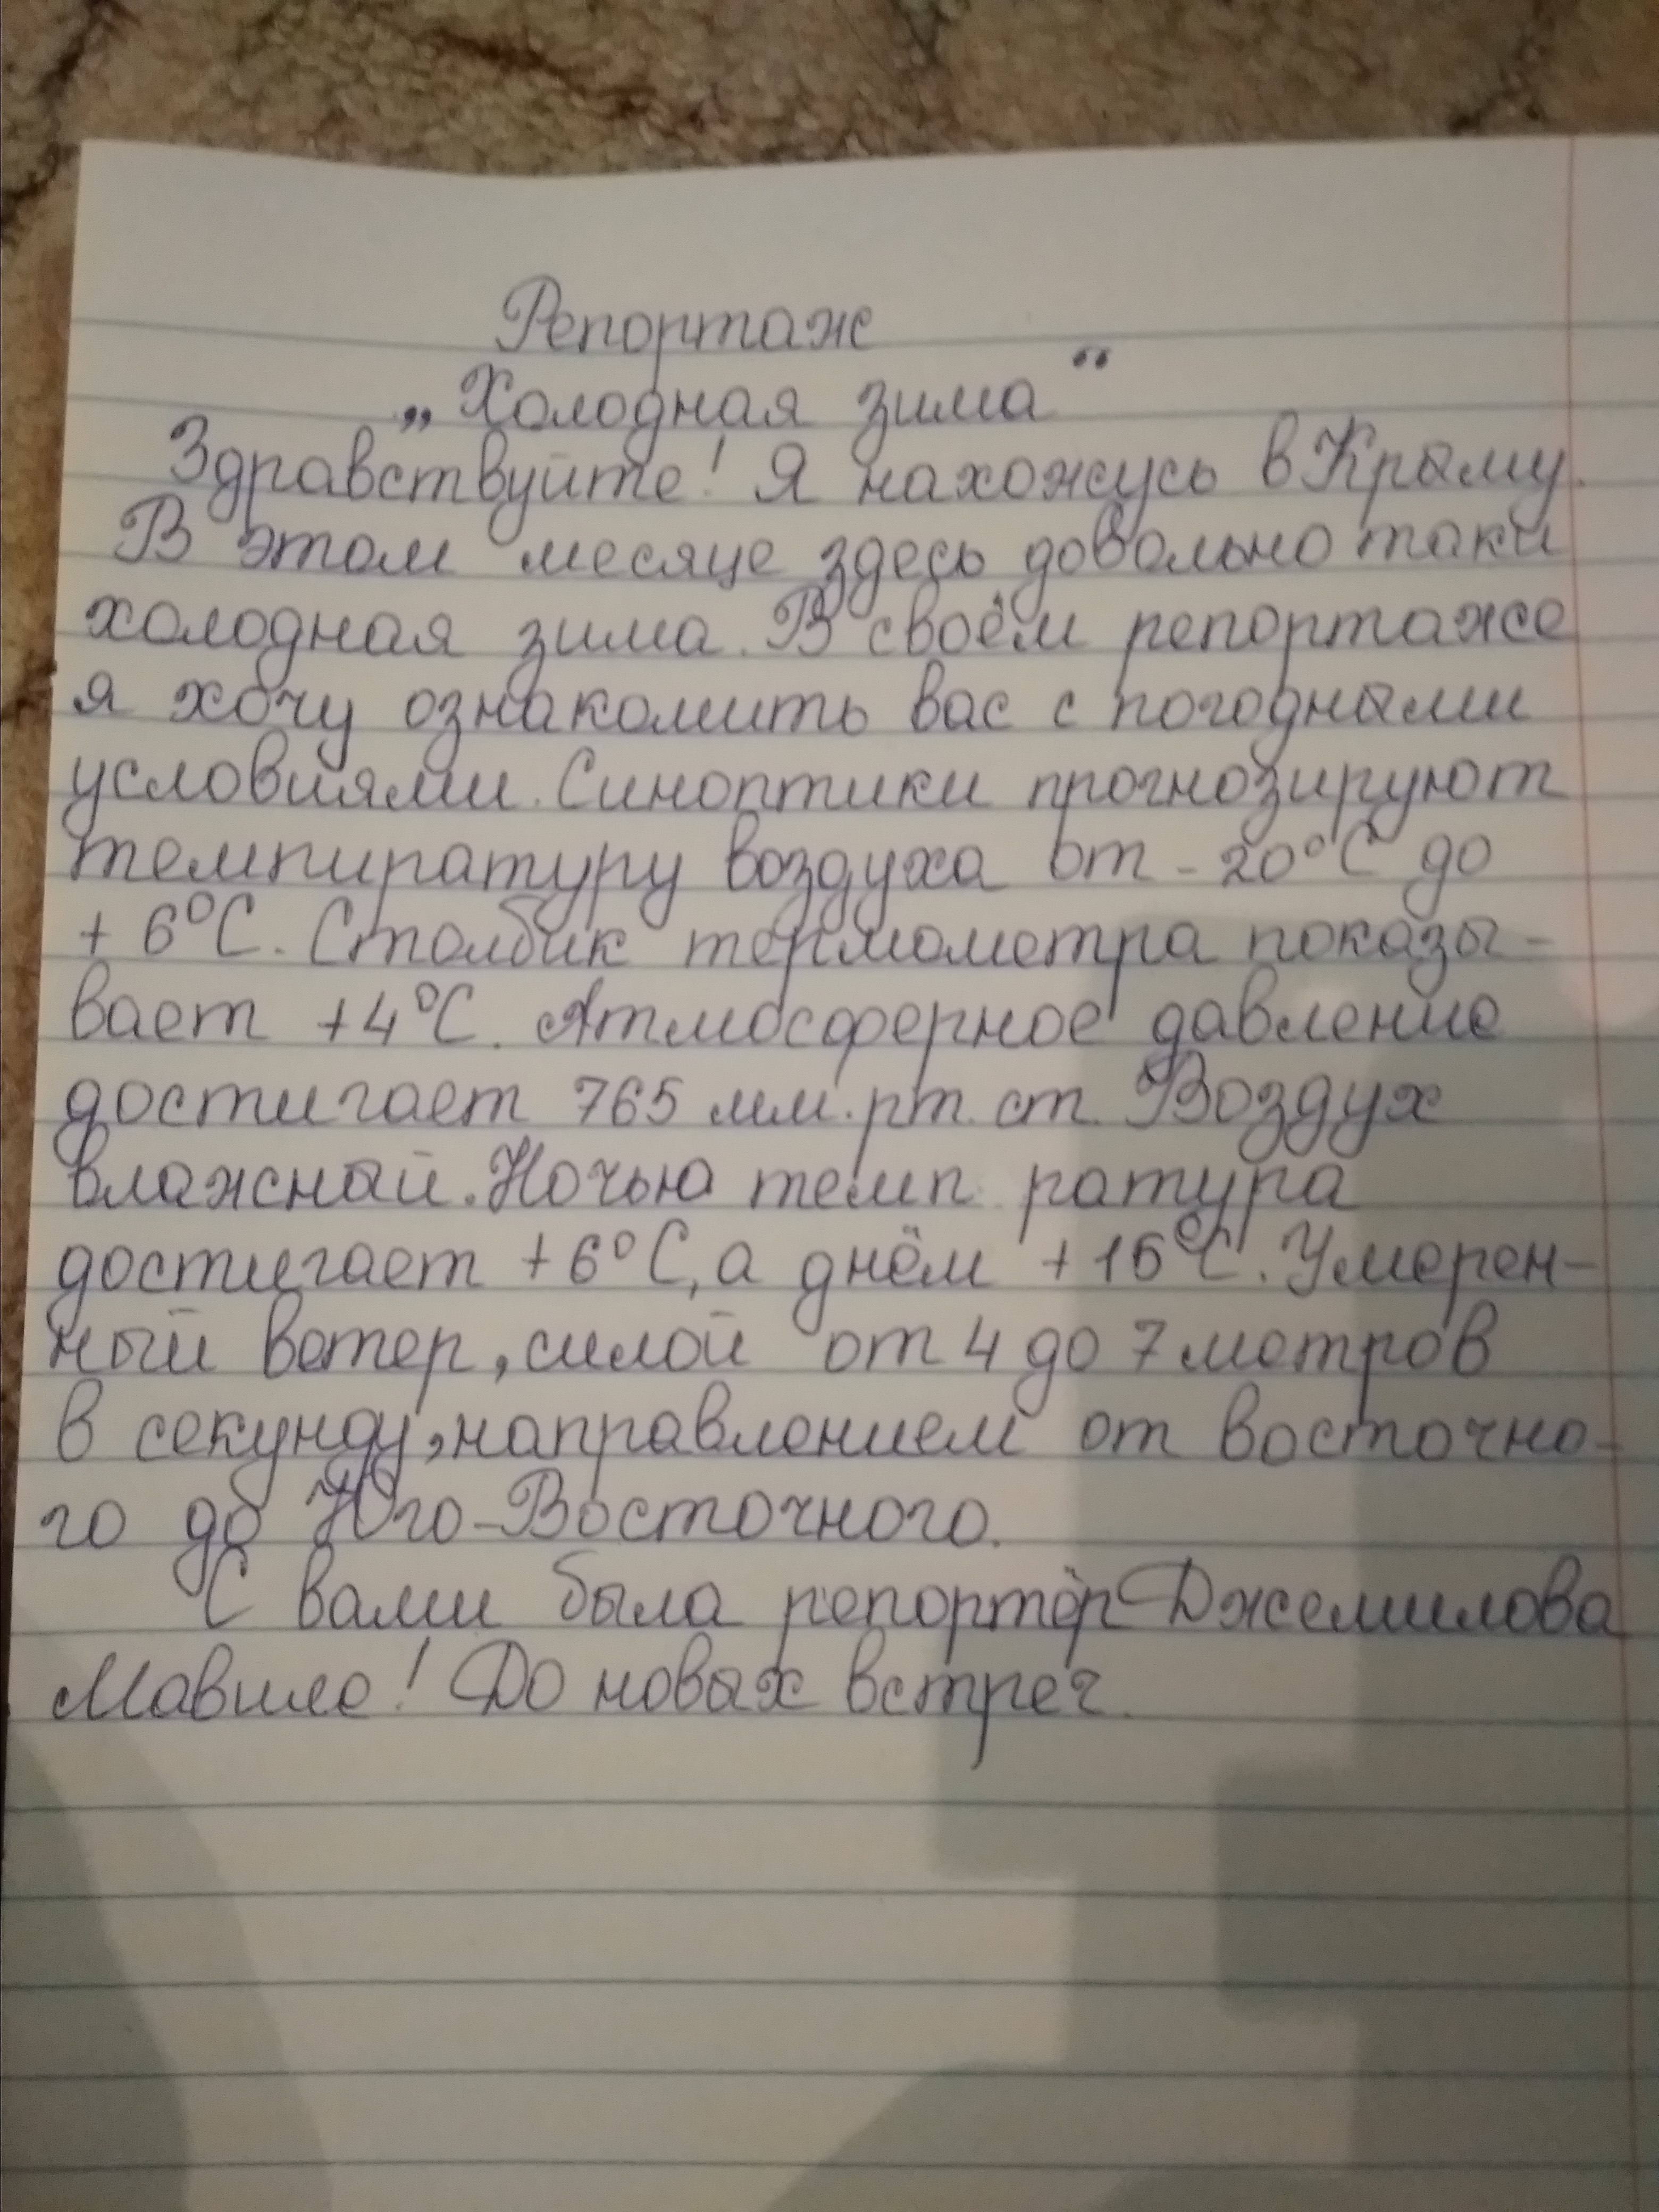 Репортаж
„Холодная зима“
Здравствуйте! Я нахожусь в Крыму.
В этом месяце здесь довольно таки
холодная зима. В своём репортаже
я хочу ознакомить вас с погодными
условиями. Синоптики прогнозируют
темпиратуру воздуха от -20°С до
+ 6°С. Столбик термометра показы-
вает +4°С. Атмосферное давление
достигает 765 мм.рт.ст. Воздух
влажный. Ночью темп ратура
достигает +6°С, а днём +15°С. Умерен-
ный ветер, силой от 4 до 7 метров
в секунду, направлением от восточно-
го до Юго-Восточного.
С вами была репортёр Джемилова
Мавиле! До новых встреч.